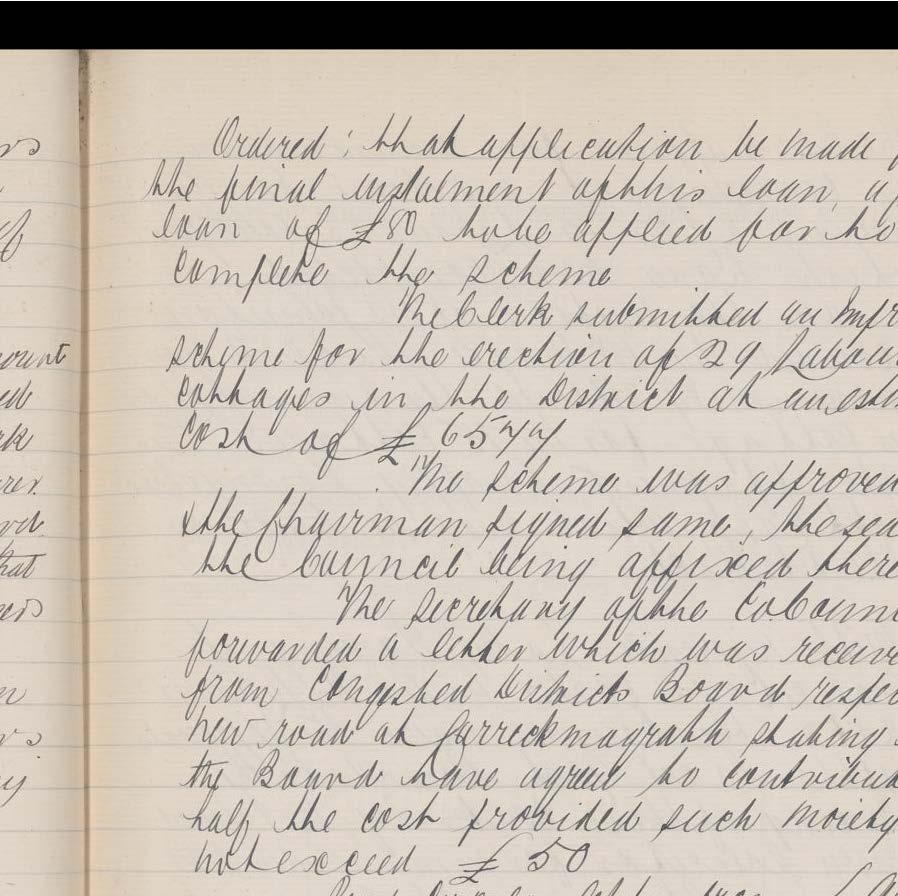 Ordered: that application be made
the final instalment of this loan, a
loan of £80 have applied for to
complete the scheme
The Clerk submitted an Impr
scheme for the erection of 29 Labour
cottages in the District at an esti
cost of £6544
The scheme was approved
& the Chairman signed same, the sea
the Council being affixed there
The Secretary of the Co Coun
forwarded a letter which was receive
from Congested Districts Board respec
new road at Carrickmagrath stating
the Board have agreed to contribut
half the cost provided such moiety
not exceed £50